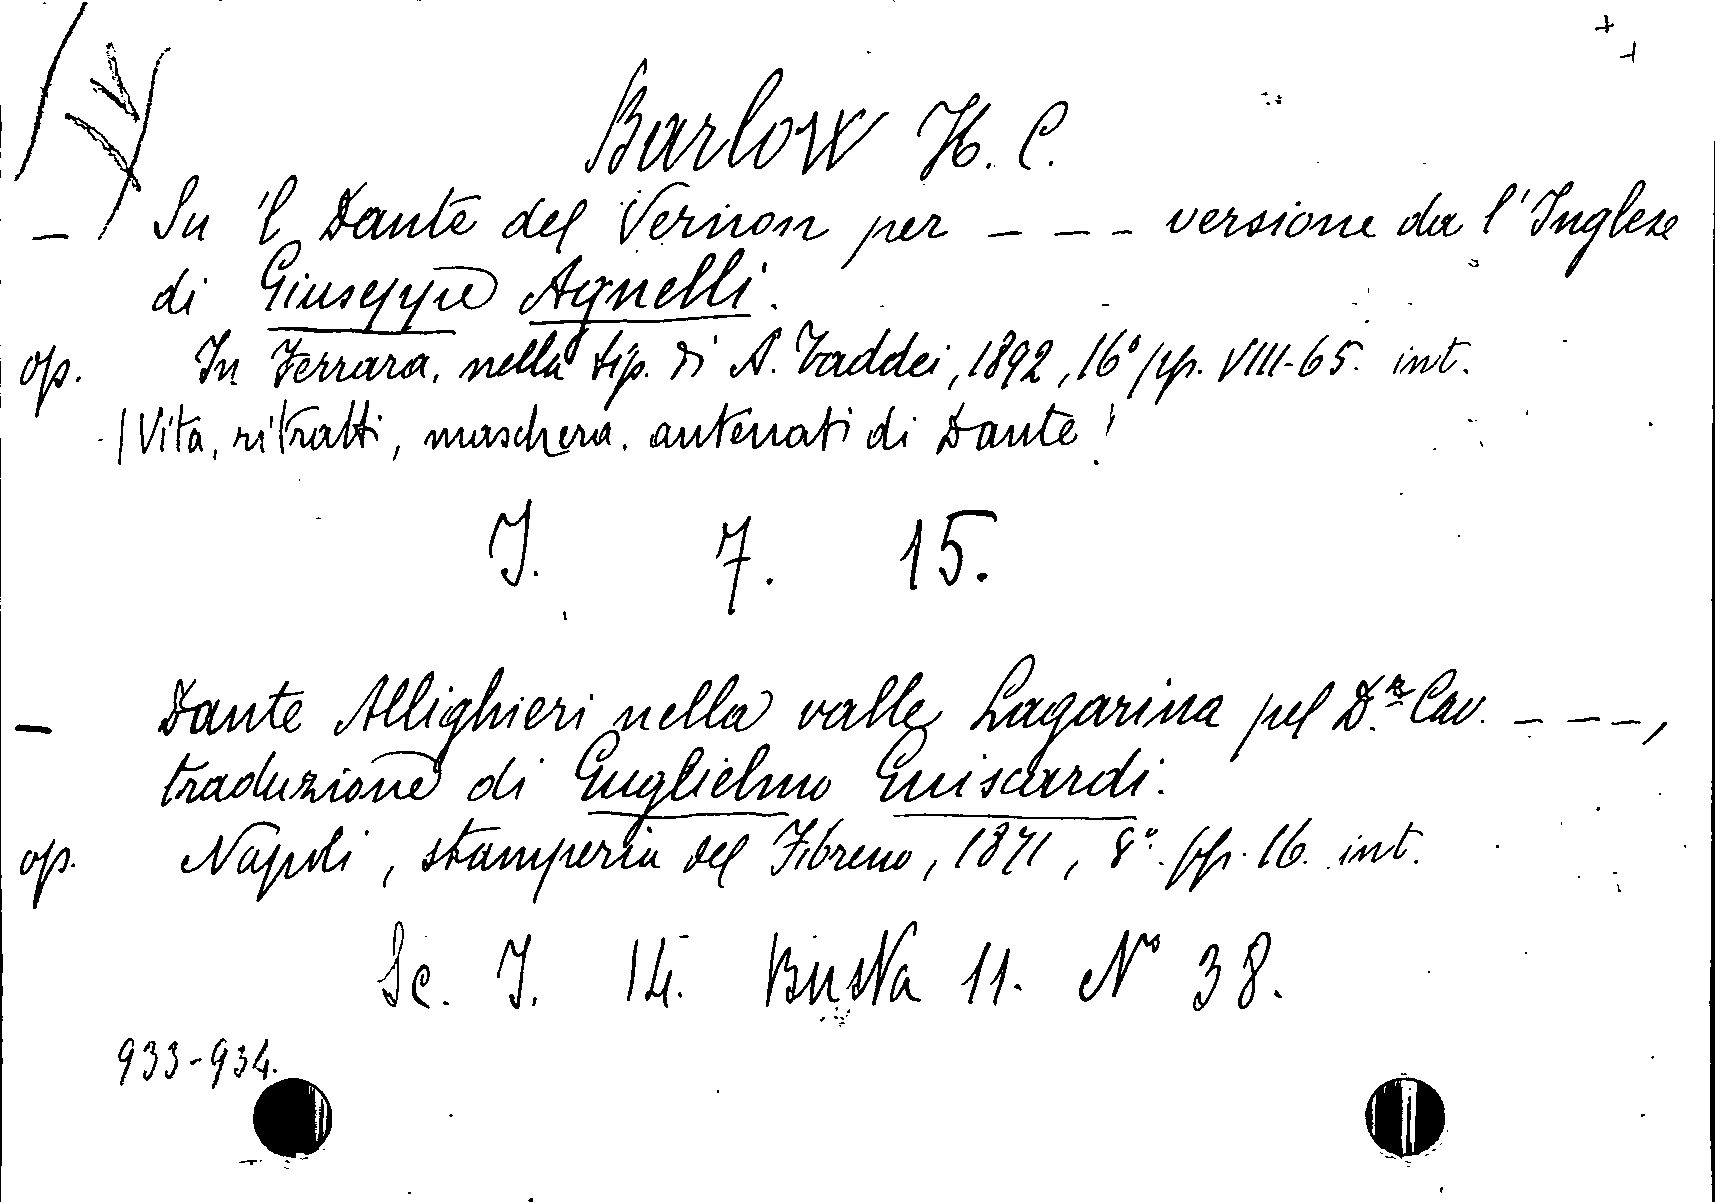 Barlow H. C.
– Su 'l Dante del Vernon per – – – versione da l'Inglese
di Giuseppe Agnelli.
op. In Ferrara, nella tip. di A. Taddei, 1892, 16° pp. VIII-65. int.
(Vita, ritratti, maschera, antenati di Dante)
I. 7. 15.
– Dante Allighieri nella valle Lagarina pel D.r Cav. – – –,
traduzione di Guglielmo Guiscardi.
op. Napoli, stamperia del Fibreno, 1871, 8°. pp. 16. int.
Sc. I. 14. Busta 11. N° 38.
933-934.